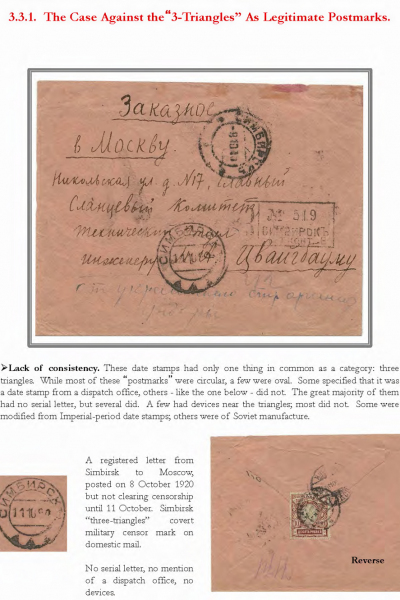 3.3.1. The Case Against the “3-Triangles” As Legitimate Postmarks.
Заказное
в Москву.
СИМБИРСК
Никольская ул. д. №17, Главный
Сланцевый Комитет
№ 519
СИМБИРСКЪ
Технический
СИМБИРСК
инженеру Цвангбауму
➢Lack of consistency. These date stamps had only one thing in common as a category: three
triangles. While most of these “postmarks” were circular, a few were oval. Some specified that it was
a date stamp from a dispatch office, others - like the one below - did not. The great majority of them
had no serial letter, but several did. A few had devices near the triangles; most did not. Some were
modified from Imperial-period date stamps; others were of Soviet manufacture.
A registered letter from
Simbirsk to Moscow,
posted on 8 October 1920
but not clearing censorship
until 11 October. Simbirsk
“three-triangles” covert
military censor mark on
domestic mail.
No serial letter, no mention
of a dispatch office, no
devices.
СИМБИРСК
Reverse